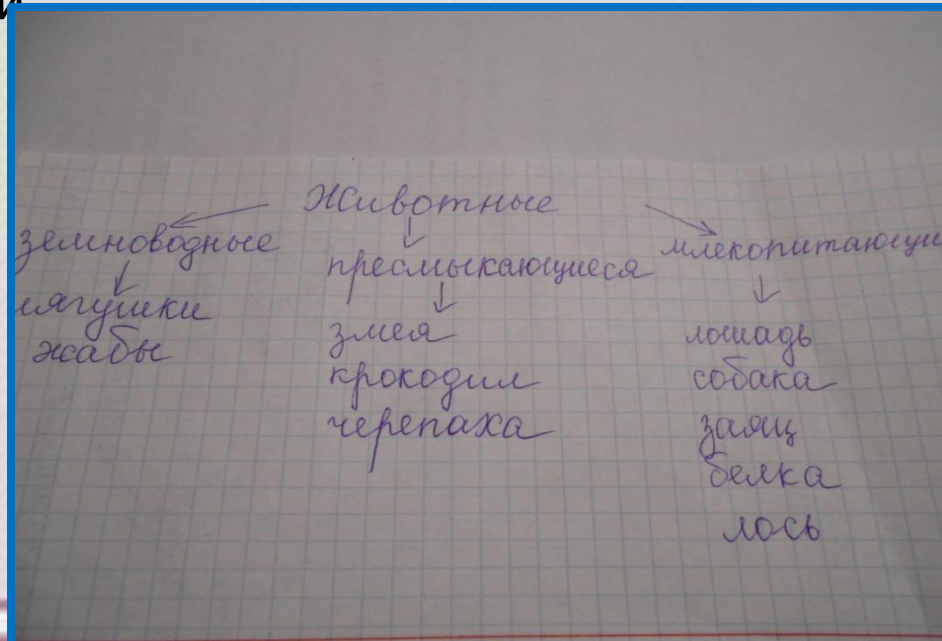 Животные
земноводные
лягушки
жабы
пресмыкающиеся
змея
крокодил
черепаха
млекопитающи
лошадь
собака
заяц
белка
лось